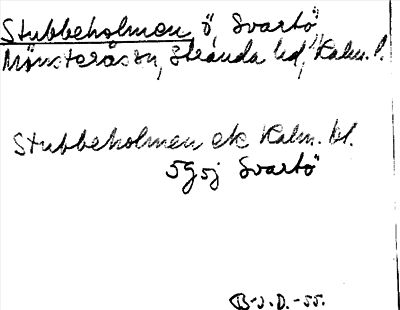 Stubbeholmen ö, Svartö
Mönsterås sn, Stranda hd, Kalm. l.
Stubbeholmen ek Kalm. bl.
5g5j Svartö
B-J.D.-55.